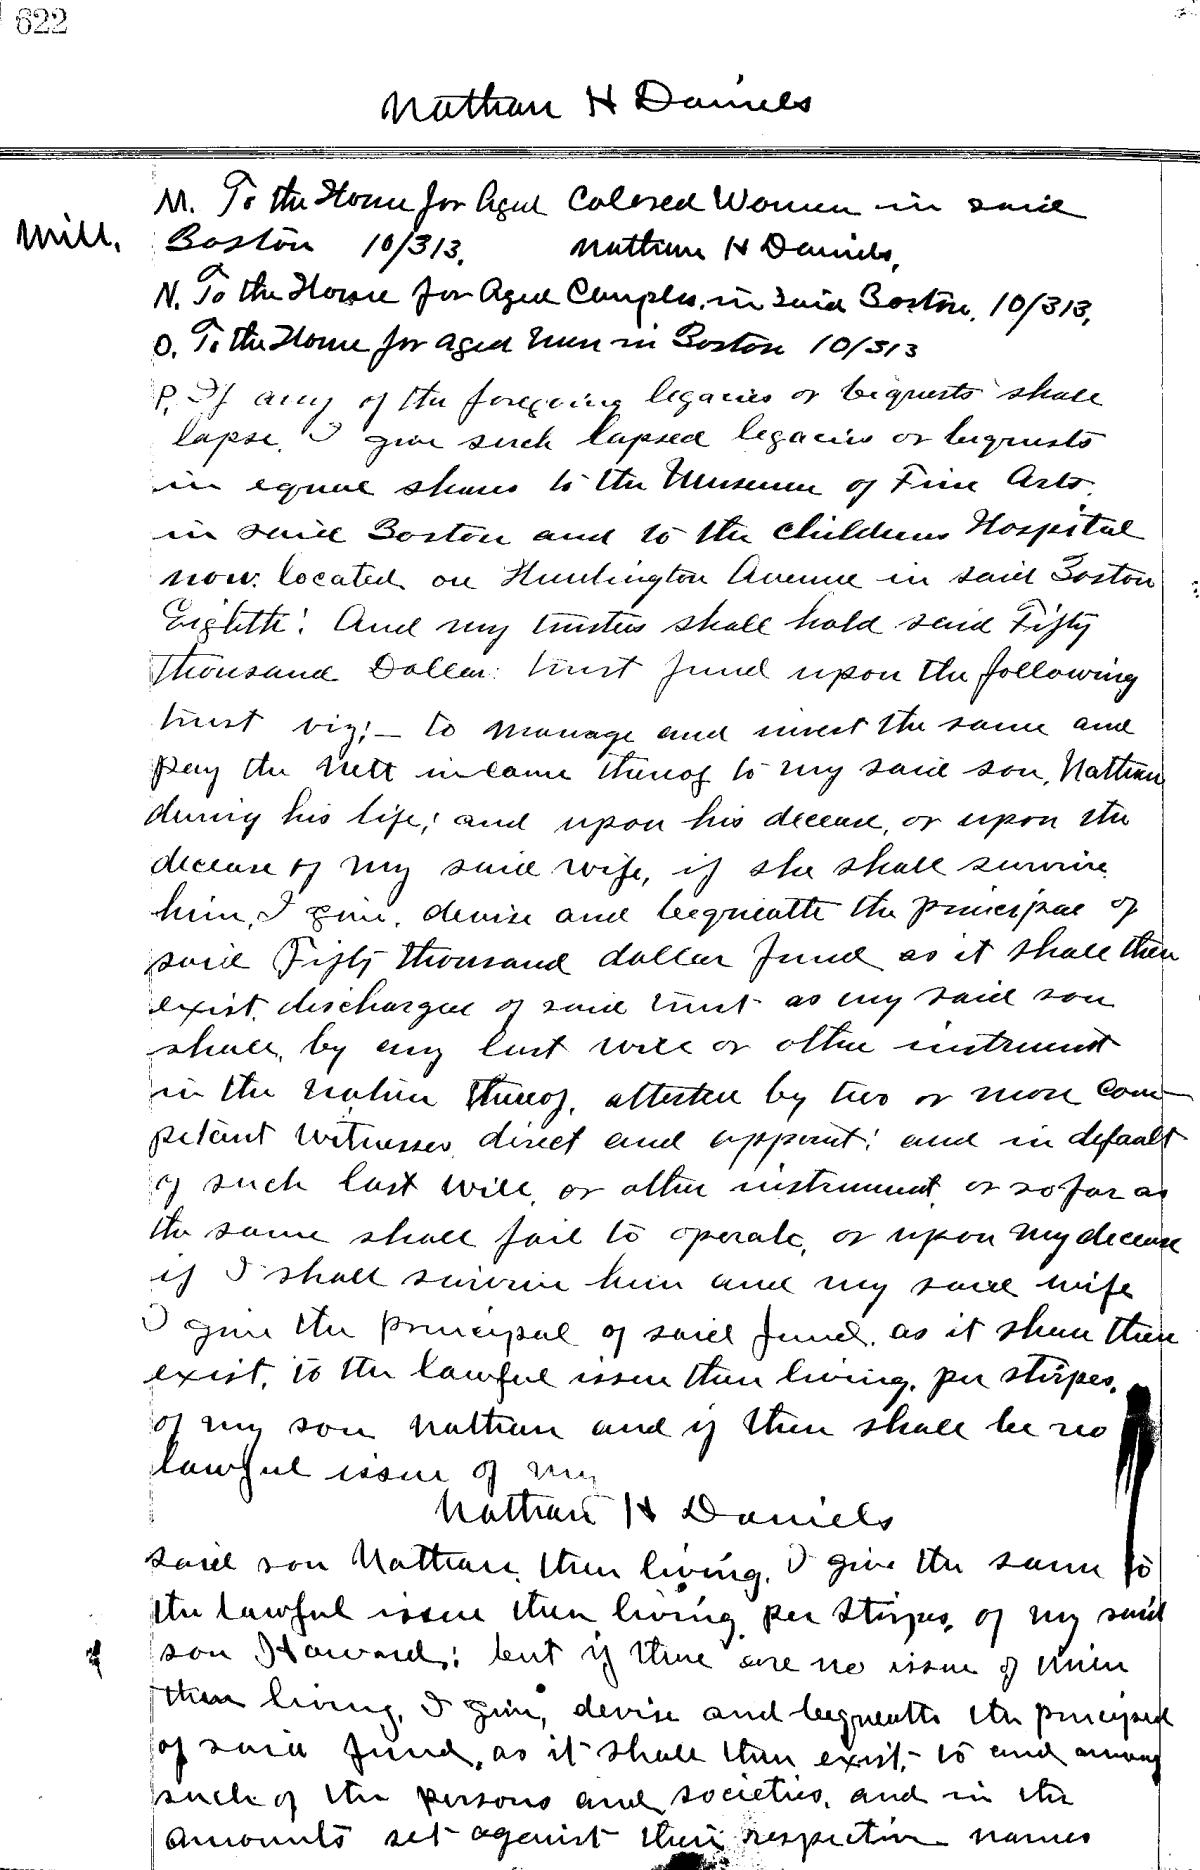 622
Nathan H Daniels
M. To the Home for Aged Colored Women in said
Will. Boston 10/313. Nathan H Daniels,
N. To the Home for Aged Couples, in said Boston, 10/313,
O. To the Home for aged Men in Boston 10/313
P. If any of the foregoing legacies or bequests shall
lapse, I give such lapsed legacies or bequests
in equal shares to the Museum of Fine Arts
in said Boston and to the Childrens Hospital
now located on Huntington Avenue in said Boston
Eighth: And my trustees shall hold said Fifty
Thousand Dollar trust fund upon the following
trust viz:— to manage and invest the same and
pay the nett income thereof to my said son, Nathan
during his life; and upon his decease, or upon the
decease of my said wife, if she shall survive
him, I give, devise and bequeath the principal of
said Fifty thousand dollar fund as it shall then
exist, discharged of said trust as my said son
shall, by any last will or other instrument
in the nature thereof, attested by two or more com—
petent witnesses direct and appoint; and in default
of such last will, or other instrument, or so far as
the same shall fail to operate, or upon my decease
if I shall survive him and my said wife
I give the principal of said fund, as it shall then
exist, to the lawful issue then living, per stirpes,
of my son Nathan and if there shall be no
lawful issue of my
Nathan H Daniels
said son Nathan, then living, I give the same to
the lawful issue then living, per stirpes, of my said
son Howard; but if there are no issue of him
then living, I give, devise and bequeath the principal
of said fund, as it shall then exist, to and among
such of the persons and societies, and in the
amounts set against their respective names